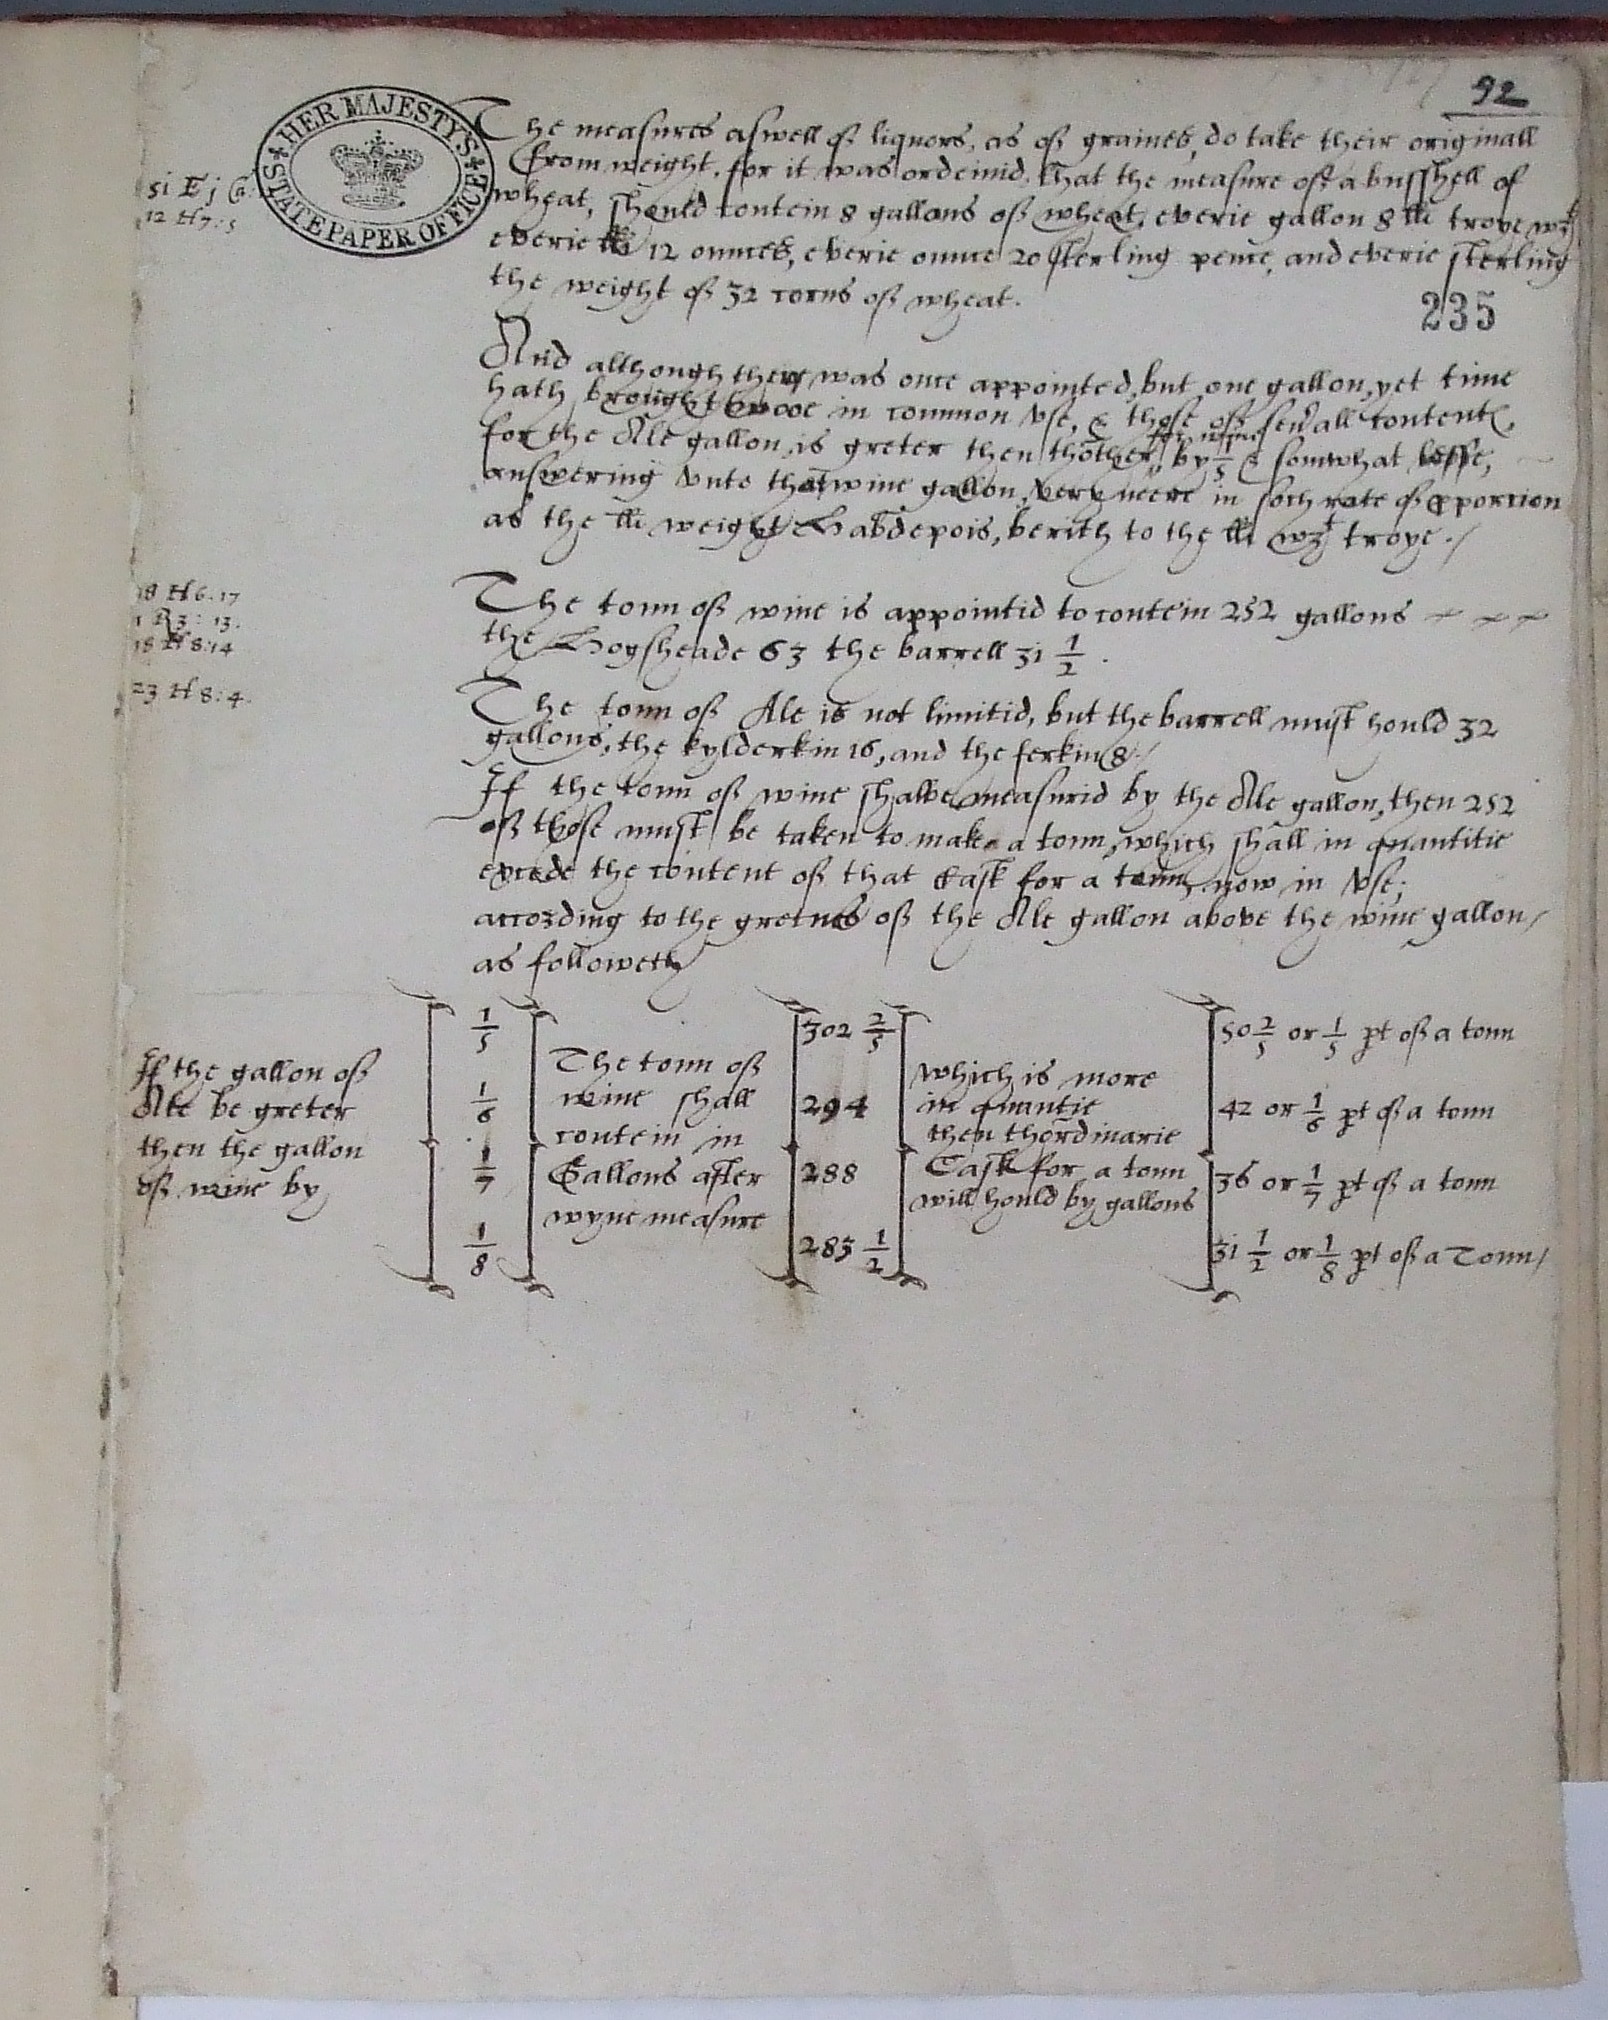 92
HER MAJESTY'S STATE PAPER OFFICE
The measures aswell of liquors, as of graines, do take their originall
51 E j
from weight. for it was ordeinid, that the measure of a busshell of
12 H 7 : 5
wheat, should contein 8 gallons of wheat, everie gallon 8 lli troye wgt
everie lli 12 ounces, everie ounce 20 sterling pence, and everie sterling
the weight of 32 corns of wheat.
235
And although ther was once appointed, but one gallon, yet time
hath brought twoe in common vse, & those of seu'all content,
for wine
for the Ale gallon, is greter then thother, by 1/5 & somwhat lesse,
answering vnto that wine gallon, very neere in soch rate of pportion
as the lli weight Habdepois, berith to the lli wgt troye ./
18 H 6 . 17
The tonn of wine is appointid to contein 252 gallons
1 R 3 : 13.
the Hogsheade 63 the barrell 31 1/2 .
18 H 8 : 14
23 H 8 : 4.
The tonn of Ale is not limitid, but the barrell must hould 32
gallons, the kylderkin 16, and the ferkin 8 ./
If the tonn of wine shalbe measurid by the Ale gallon, then 252
of those must be taken to make a tonn, which shall in quantitie
excede the content of that Cask for a tonn, now in vse;
according to the gretnes of the Ale gallon above the wine gallon /
as followeth
If the gallon of
Ale be greter
then the gallon
of wine by
1/5
1/6
1/7
1/8
The tonn of
wine shall
contein in
Gallons after
wyne measure
302 2/5
294
288
283 1/2
which is more
in quantie
then thordinarie
Cask for a tonn
will hould by gallons
50 2/5 or 1/5 pt of a tonn
42 or 1/6 pt of a tonn
36 or 1/7 pt of a tonn
31 1/2 or 1/8 pt of a Tonn /